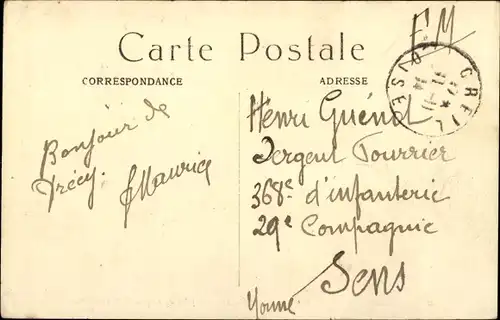 F.M
Carte Postale
CORRESPONDANCE
ADRESSE
CREIL
OISE
Bonjour de
Précy.
Maurice
Henri Guénot
Sergent Fourrier
368e d'infanterie
29e Compagnie
Sens
Yonne